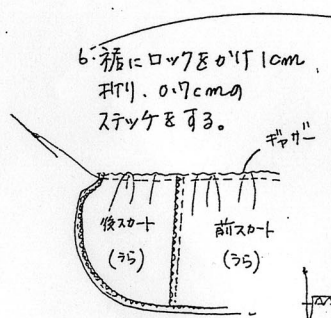 6. 裾にロックをかけ1cm
折り、0.7cmの
ステッチをする。
ギャザー
後スカート
(うら)
前スカート
(うら)